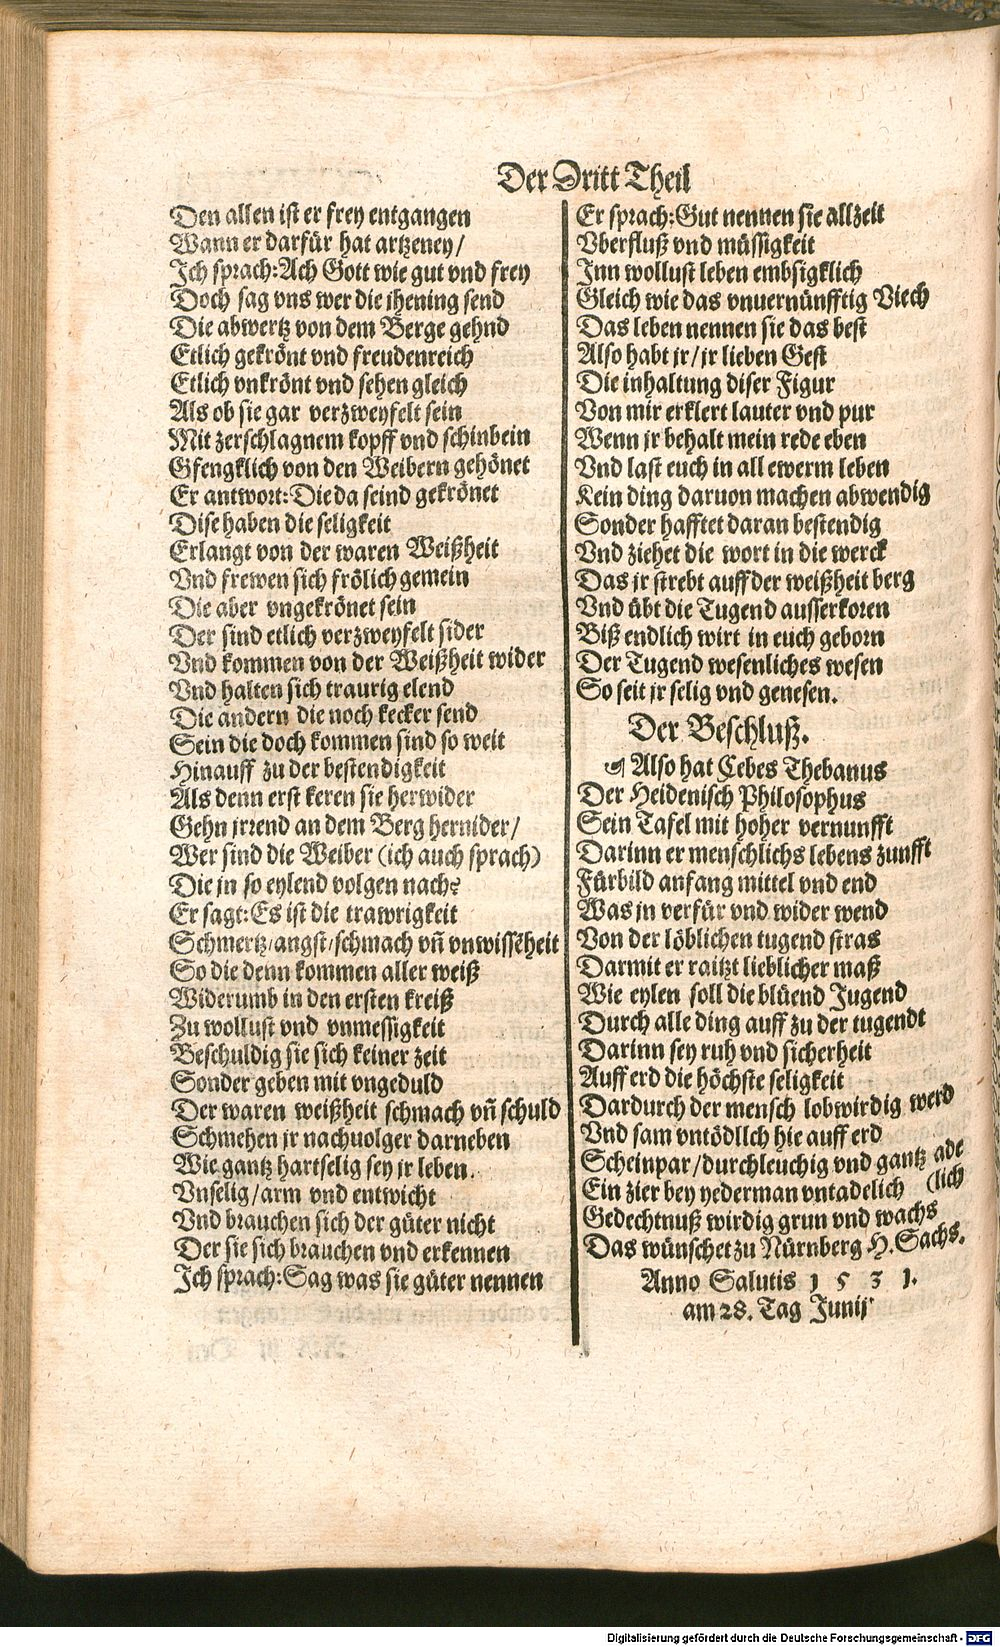 Der Dritt Theil
Den allen ist er frey entgangen
Wann er darfür hat artzeney/
Ich sprach: Ach Gott wie gut vnd frey
Doch sag vns wer die jhening send
Die abwertz von dem Berge gehnd
Etlich gekrönt vnd freudenreich
Etlich vnkrönt vnd sehen gleich
Als ob sie gar verzweyfelt sein
Mit zerschlagnem kopff vnd schinbein
Gfengklich von den Weibern gehönet
Er antwort: Die da seind gekrönet
Dise haben die seligkeit
Erlangt von der waren Weißheit
Vnd frewen sich frölich gemein
Die aber vngekrönet sein
Der sind etlich verzweyfelt sider
Vnd kommen von der Weißheit wider
Vnd halten sich traurig elend
Die andern die noch kecker send
Sein die doch kommen sind so weit
Hinauff zu der bestendigkeit
Als denn erst keren sie herwider
Gehn jrrend an dem Berg hernider/
Wer sind die Weiber (ich auch sprach)
Die jn so eylend volgen nach?
Er sagt: Es ist die trawrigkeit
Schmertz/angst/schmach vñ vnwissẽheit
So die denn kommen aller weiß
Widerumb in den ersten kreiß
Zu wollust vnd vnmessigkeit
Beschuldig sie sich keiner zeit
Sonder geben mit vngeduld
Der waren weißheit schmach vñ schuld
Schmehen jr nachuolger darneben
Wie gantz hartselig sey jr leben.
Vnselig/arm vnd entwicht
Vnd brauchen sich der güter nicht
Der sie sich brauchen vnd erkennen
Ich sprach: Sag was sie güter nennen
Er sprach: Gut nennen sie allzeit
Vberfluß vnd müssigkeit
Inn wollust leben embsigklich
Gleich wie das vnuernünfftig Viech
Das leben nennen sie das best
Also habt jr/jr lieben Gest
Die inhaltung diser Figur
Von mir erklert lauter vnd pur
Wenn jr behalt mein rede eben
Vnd last euch in all ewerm leben
Kein ding daruon machen abwendig
Sonder hafftet daran bestendig
Vnd ziehet die wort in die werck
Das jr strebt auff der weißheit berg
Vnd übt die Tugend ausserkoren
Biß endlich wirt in euch geborn
Der Tugend wesenliches wesen
So seit jr selig vnd genesen.
Der Beschluß.
☙ Also hat Cebes Thebanus
Der Heidenisch Philosophus
Sein Tafel mit hoher vernunfft
Darinn er menschlichs lebens zunfft
Fürbild anfang mittel vnd end
Was jn verfür vnd wider wend
Von der löblichen tugend stras
Darmit er raitzt lieblicher maß
Wie eylen soll die blüend Jugend
Durch alle ding auff zu der tugendt
Darinn sey ruh vnd sicherheit
Auff erd die höchste seligkeit
Dardurch der mensch lobwirdig werd
Vnd sam vntödllch hie auff erd
Scheinpar/durchleuchig vnd gantz ade
Ein zier bey yederman vntadelich (lich
Gedechtnuß wirdig grun vnd wachs
Das wünschet zu Nürnberg H. Sachs.
Anno Salutis 1 5 3 1.
am 28. Tag Junij
Digitalisierung gefördert durch die Deutsche Forschungsgemeinschaft - DFG